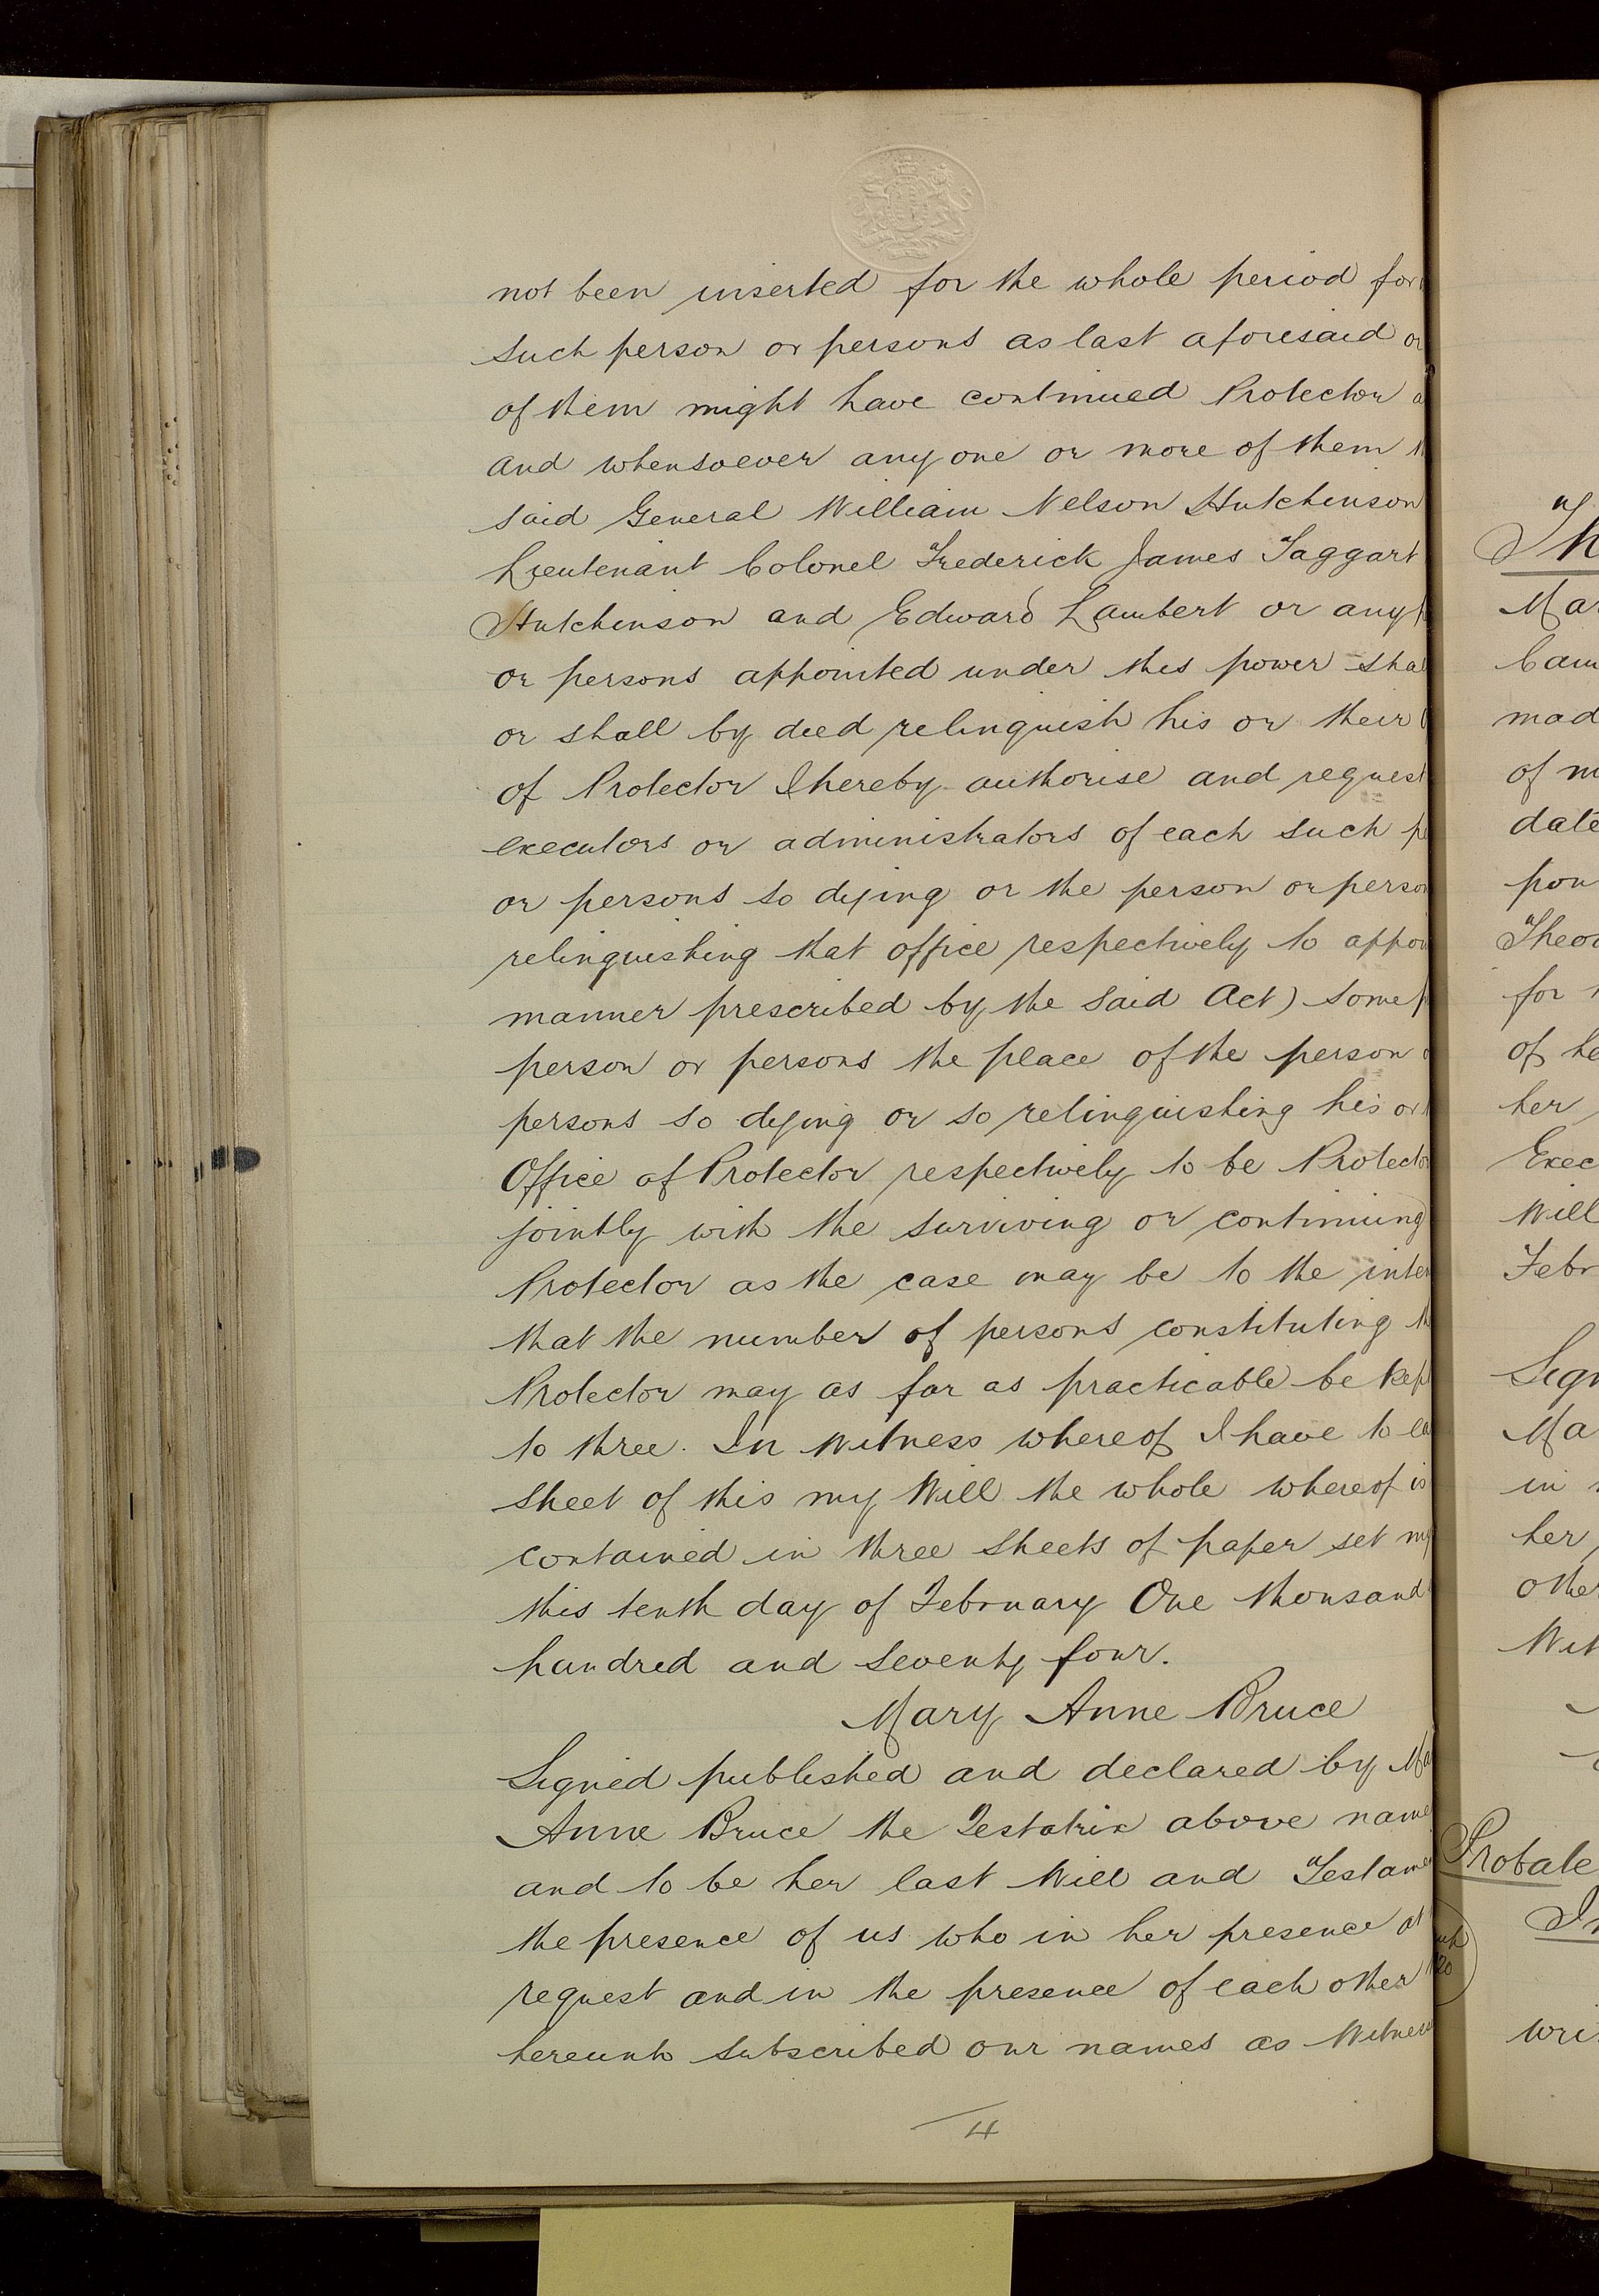 not been inserted for the whole period for
such person or persons as last aforesaid or
of them might have continued Protector
and whensoever any one or more of them
said General William Nelson Hutchinson
Lieutenant Colonel Frederick James Taggart
Hutchinson and Edward Lambert or any
or persons appointed under this power sha
or shall by deed relinquish his or their
of Protector I hereby authorise and request
executors or administrators of each such
or persons so dying or the person or perso
relinquishing that office respectively to appoi
manner prescribed by the said Act) some
person or persons the place of the person
persons so dying or so relinquishing his or
Office of Protector respectively to be Protector
jointly with the surviving or continuing
Protector as the case may be to the inten
that the number of persons constituting th
Protector may as far as practicable be kept
to three. In Witness whereof I have to ea
sheet of this my Will the whole whereof is
contained in three sheets of paper set my
this tenth day of February One thousand
hundred and seventy four.
Mary Anne Bruce
Signed published and declared by Ma
Anne Bruce the Testatrix above name
and to be her last Will and Testame
the presence of us who in her presence at
request and in the presence of each other
hereunto subscribed our names as Witness
4
Th
Mar
Cam
mad
of m
date
pou
Theo
for
of he
her
Exec
Will
Febr
Sign
Ma
in
her
other
Wit
Probate
In
wri